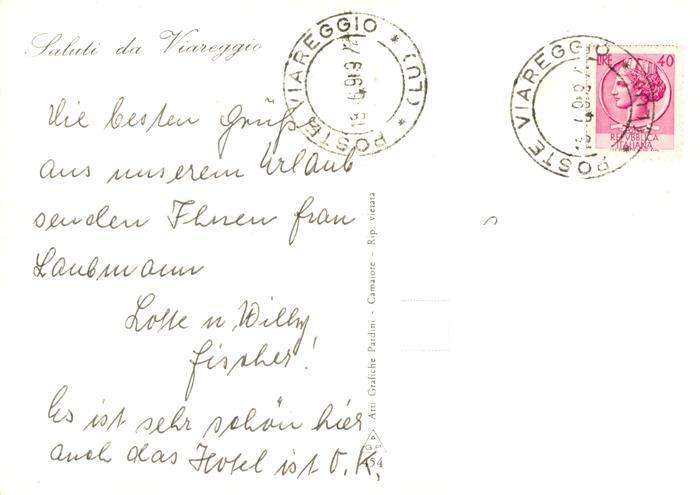 Saluti da Viareggio
POSTE VIAREGGIO * (LU) *
POSTE VIAREGGIO * (LU) *
LIRE 40
REPVBBLICA
ITALIANA
Die besten Grüße
aus unserem Urlaub
senden Ihnen frau
Laubmann
Lotte u Willy
fischer!
Es ist sehr schön hier
auch das Hotel ist O.K,
Arti Grafiche Pardini - Camaiore - Rip. vietata